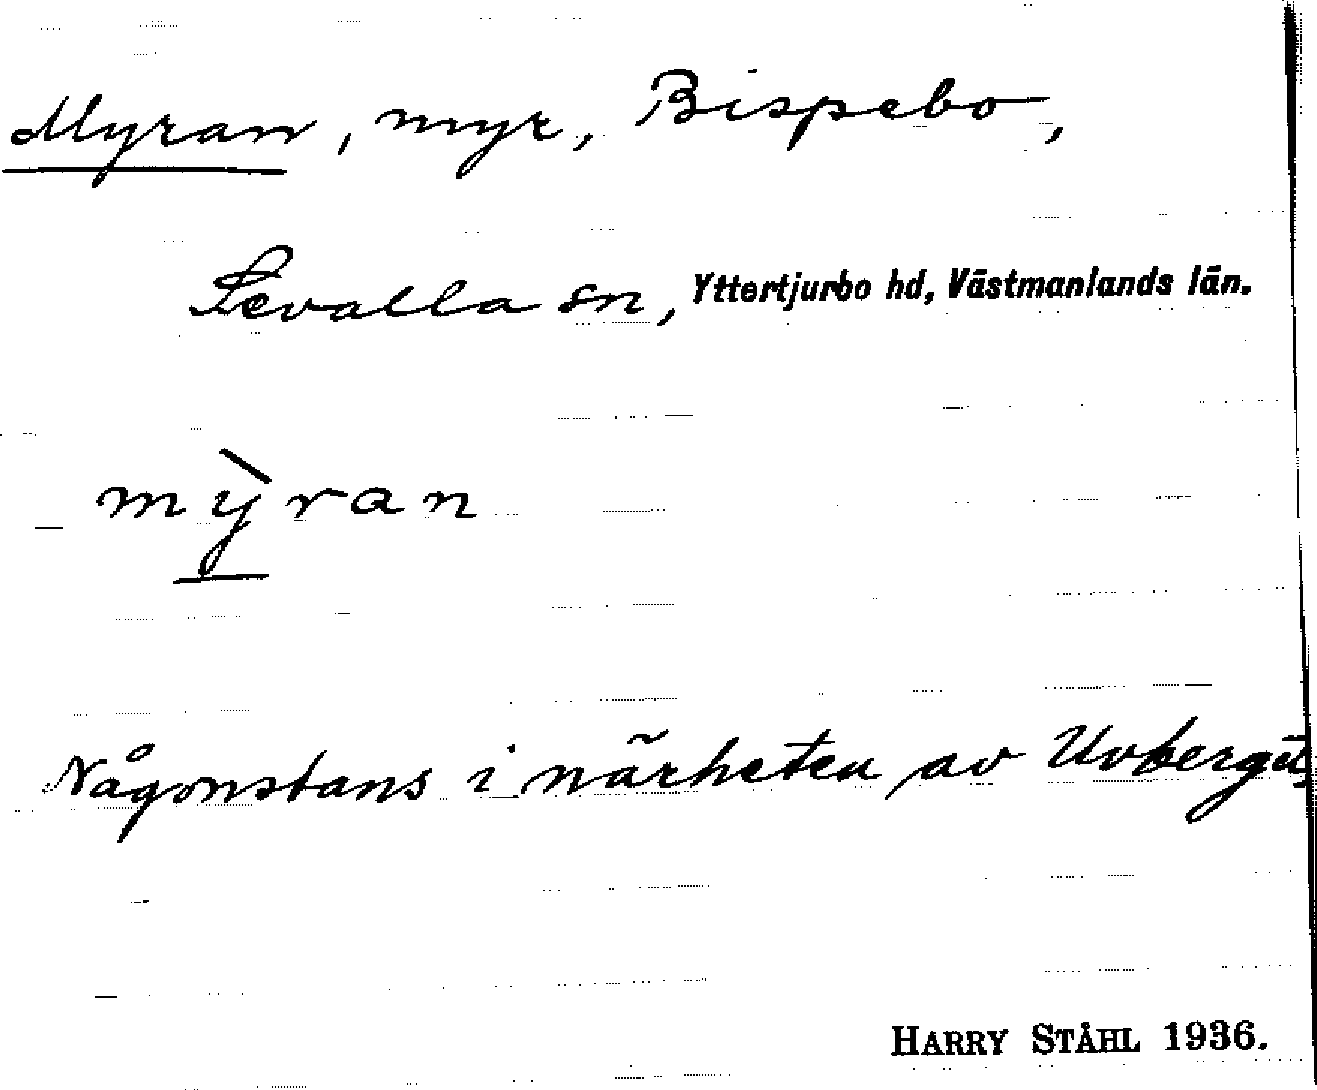 Myran, myr, Bispebo,
Sevalla sn, Yttertjurbo hd, Västmanlands län.
mỳran
Någonstans i närheten av Uvberget.
HARRY STÅHL 1936.